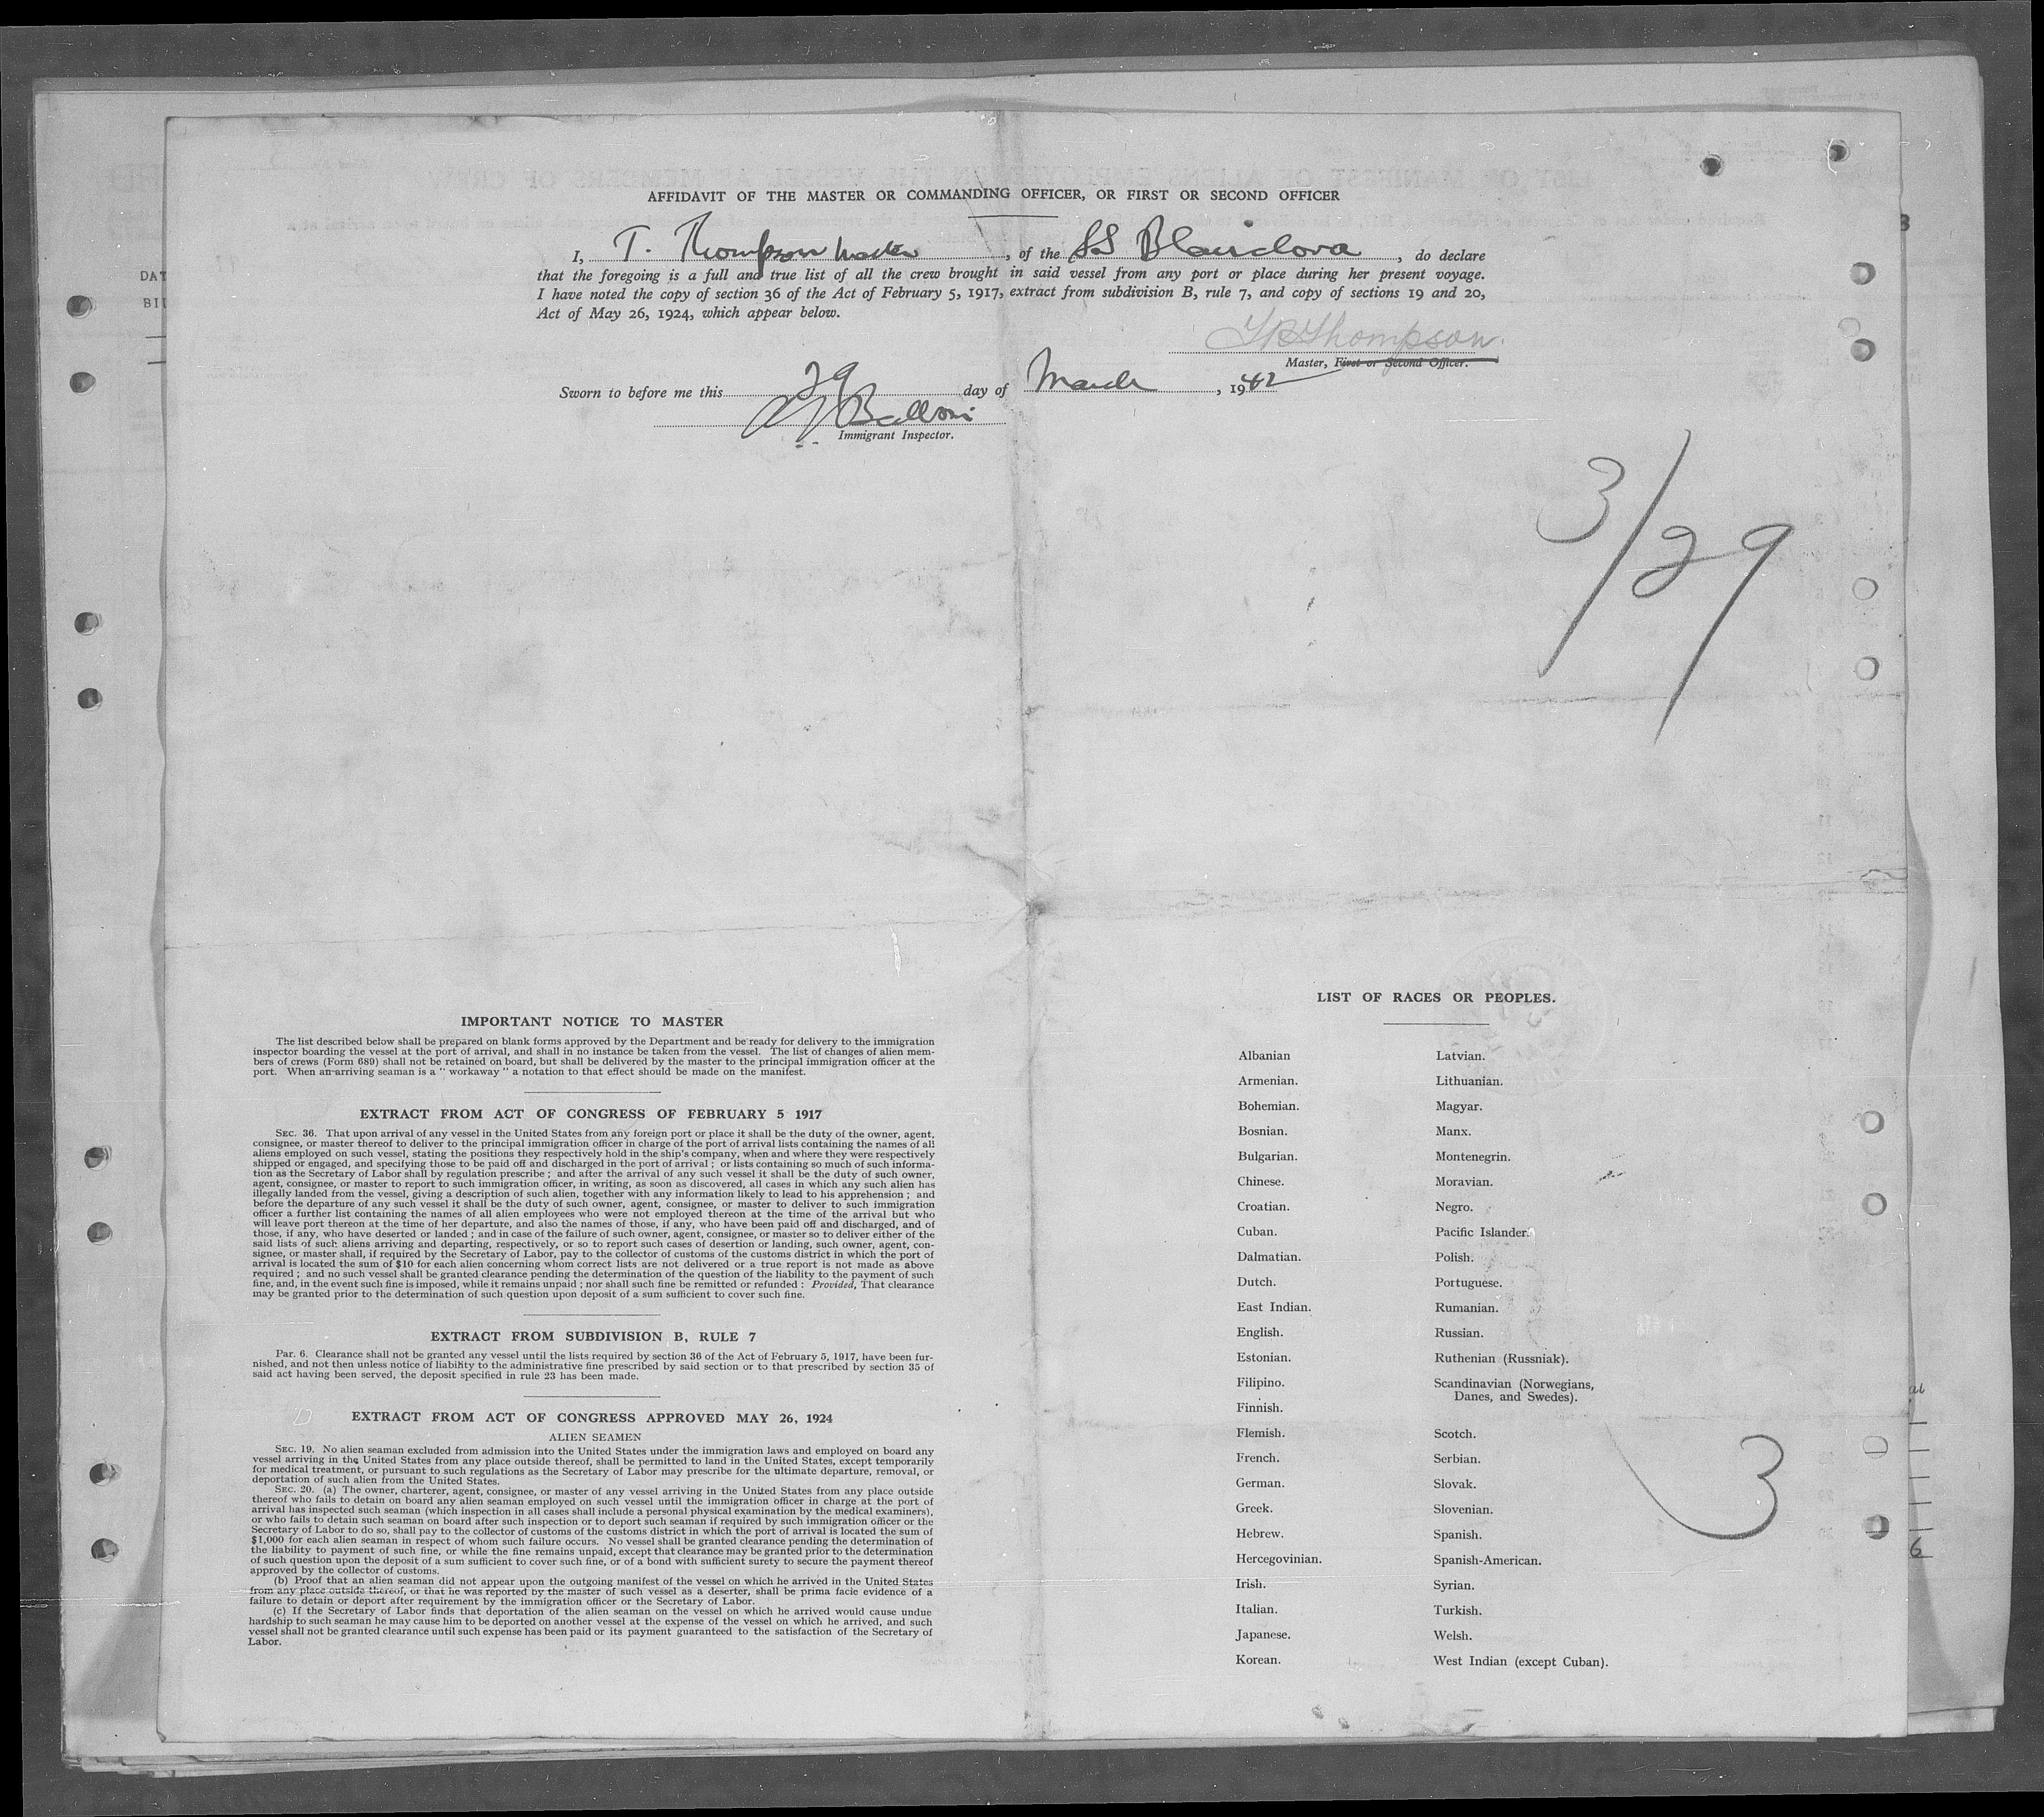 AFFIDAVIT OF THE MASTER OR COMMANDING OFFICER, OR FIRST OR SECOND OFFICER
I, T. Thompson Master, of the SS Blairclova, do declare
that the foregoing is a full and true list of all the crew brought in said vessel from any port or place during her present voyage.
I have noted the copy of section 36 of the Act of February 5, 1917, extract from subdivision B, rule 7, and copy of sections 19 and 20,
Act of May 26, 1924, which appear below.
Thompson.
Master, First or Second Officer.
Sworn to before me this 29 day of March, 1942
Immigrant Inspector.
3/29
IMPORTANT NOTICE TO MASTER
The list described below shall be prepared on blank forms approved by the Department and be ready for delivery to the immigration
inspector boarding the vessel at the port of arrival, and shall in no instance be taken from the vessel. The list of changes of alien mem-
bers of crews (Form 689) shall not be retained on board, but shall be delivered by the master to the principal immigration officer at the
port. When an arriving seaman is a " workaway " a notation to that effect should be made on the manifest.
EXTRACT FROM ACT OF CONGRESS OF FEBRUARY 5 1917
SEC. 36. That upon arrival of any vessel in the United States from any foreign port or place it shall be the duty of the owner, agent,
consignee, or master thereof to deliver to the principal immigration officer in charge of the port of arrival lists containing the names of all
aliens employed on such vessel, stating the positions they respectively hold in the ship's company, when and where they were respectively
shipped or engaged, and specifying those to be paid off and discharged in the port of arrival ; or lists containing so much of such informa-
tion as the Secretary of Labor shall by regulation prescribe ; and after the arrival of any such vessel it shall be the duty of such owner,
agent, consignee, or master to report to such immigration officer, in writing, as soon as discovered, all cases in which any such alien has
illegally landed from the vessel, giving a description of such alien, together with any information likely to lead to his apprehension ; and
before the departure of any such vessel it shall be the duty of such owner, agent, consignee, or master to deliver to such immigration
officer a further list containing the names of all alien employees who were not employed thereon at the time of the arrival but who
will leave port thereon at the time of her departure, and also the names of those, if any, who have been paid off and discharged, and of
those, if any, who have deserted or landed ; and in case of the failure of such owner, agent, consignee, or master so to deliver either of the
said lists of such aliens arriving and departing, respectively, or so to report such cases of desertion or landing, such owner, agent, con-
signee, or master shall, if required by the Secretary of Labor, pay to the collector of customs of the customs district in which the port of
arrival is located the sum of $10 for each alien concerning whom correct lists are not delivered or a true report is not made as above
required ; and no such vessel shall be granted clearance pending the determination of the question of the liability to the payment of such
fine, and, in the event such fine is imposed, while it remains unpaid ; nor shall such fine be remitted or refunded : Provided, That clearance
may be granted prior to the determination of such question upon deposit of a sum sufficient to cover such fine.
EXTRACT FROM SUBDIVISION B, RULE 7
Par. 6. Clearance shall not be granted any vessel until the lists required by section 36 of the Act of February 5, 1917, have been fur-
nished, and not then unless notice of liability to the administrative fine prescribed by said section or to that prescribed by section 35 of
said act having been served, the deposit specified in rule 23 has been made.
EXTRACT FROM ACT OF CONGRESS APPROVED MAY 26, 1924
ALIEN SEAMEN
SEC. 19. No alien seaman excluded from admission into the United States under the immigration laws and employed on board any
vessel arriving in the United States from any place outside thereof, shall be permitted to land in the United States, except temporarily
for medical treatment, or pursuant to such regulations as the Secretary of Labor may prescribe for the ultimate departure, removal, or
deportation of such alien from the United States.
SEC. 20. (a) The owner, charterer, agent, consignee, or master of any vessel arriving in the United States from any place outside
thereof who fails to detain on board any alien seaman employed on such vessel until the immigration officer in charge at the port of
arrival has inspected such seaman (which inspection in all cases shall include a personal physical examination by the medical examiners),
or who fails to detain such seaman on board after such inspection or to deport such seaman if required by such immigration officer or the
Secretary of Labor to do so, shall pay to the collector of customs of the customs district in which the port of arrival is located the sum of
$1,000 for each alien seaman in respect of whom such failure occurs. No vessel shall be granted clearance pending the determination of
the liability to payment of such fine, or while the fine remains unpaid, except that clearance may be granted prior to the determination
of such question upon the deposit of a sum sufficient to cover such fine, or of a bond with sufficient surety to secure the payment thereof
approved by the collector of customs.
(b) Proof that an alien seaman did not appear upon the outgoing manifest of the vessel on which he arrived in the United States
from any place outside thereof, or that he was reported by the master of such vessel as a deserter, shall be prima facie evidence of a
failure to detain or deport after requirement by the immigration officer or the Secretary of Labor.
(c) If the Secretary of Labor finds that deportation of the alien seaman on the vessel on which he arrived would cause undue
hardship to such seaman he may cause him to be deported on another vessel at the expense of the vessel on which he arrived, and such
vessel shall not be granted clearance until such expense has been paid or its payment guaranteed to the satisfaction of the Secretary of
Labor.
LIST OF RACES OR PEOPLES.
Albanian Latvian.
Armenian. Lithuanian.
Bohemian. Magyar.
Bosnian. Manx.
Bulgarian. Montenegrin.
Chinese. Moravian.
Croatian. Negro.
Cuban. Pacific Islander.
Dalmatian. Polish.
Dutch. Portuguese.
East Indian. Rumanian.
English. Russian.
Estonian. Ruthenian (Russniak).
Filipino. Scandinavian (Norwegians,
Danes, and Swedes).
Finnish.
Flemish. Scotch.
French. Serbian.
German. Slovak.
Greek. Slovenian.
Hebrew. Spanish.
Hercegovinian. Spanish-American.
Irish. Syrian.
Italian. Turkish.
Japanese. Welsh.
Korean. West Indian (except Cuban).
3